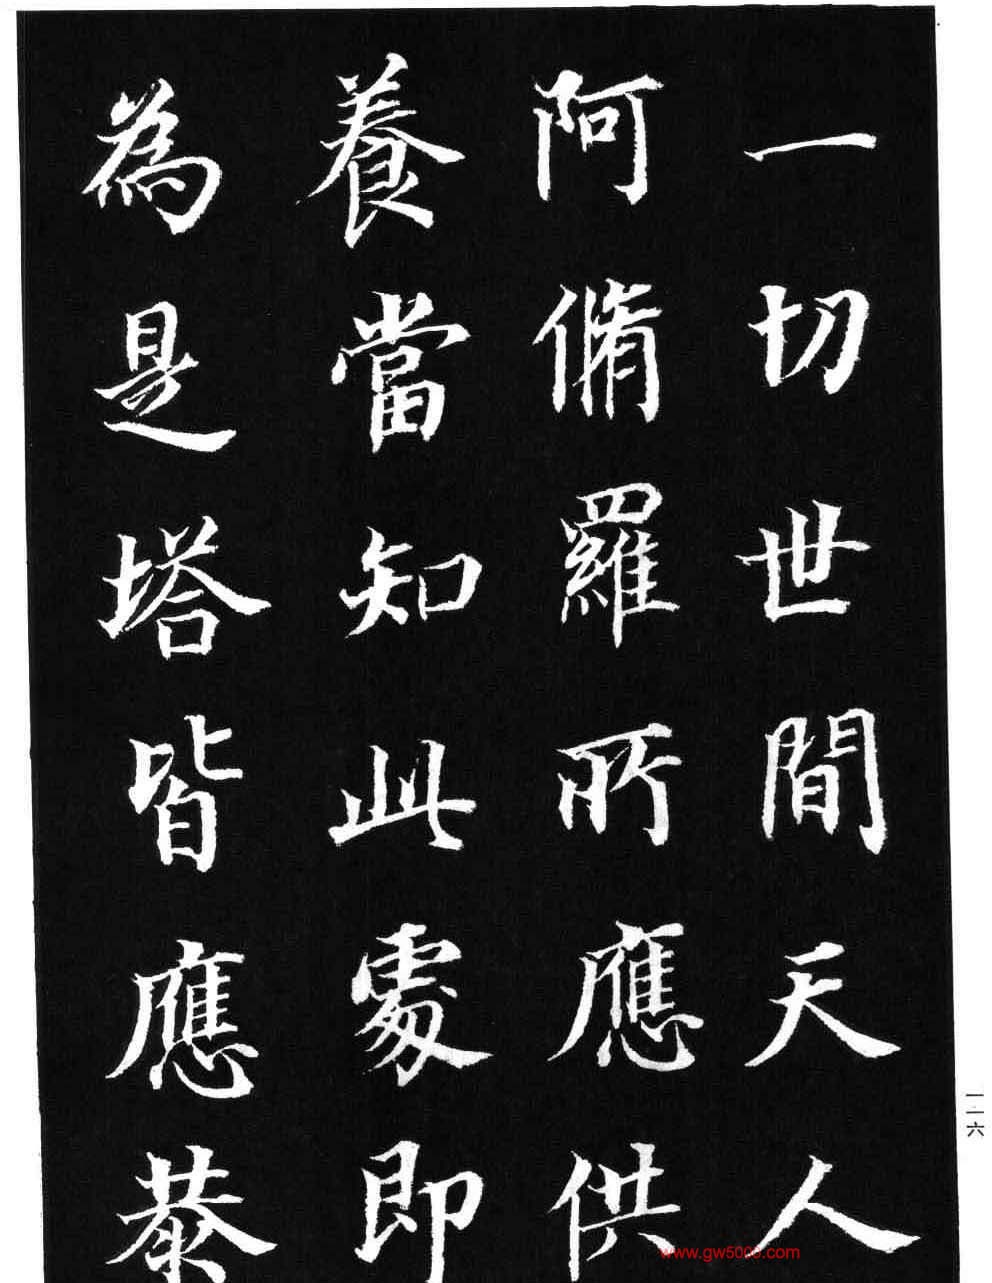 一切世間天人
阿脩羅所應供
養當知此處即
為是塔皆應恭
一一六
www.gw5000.com